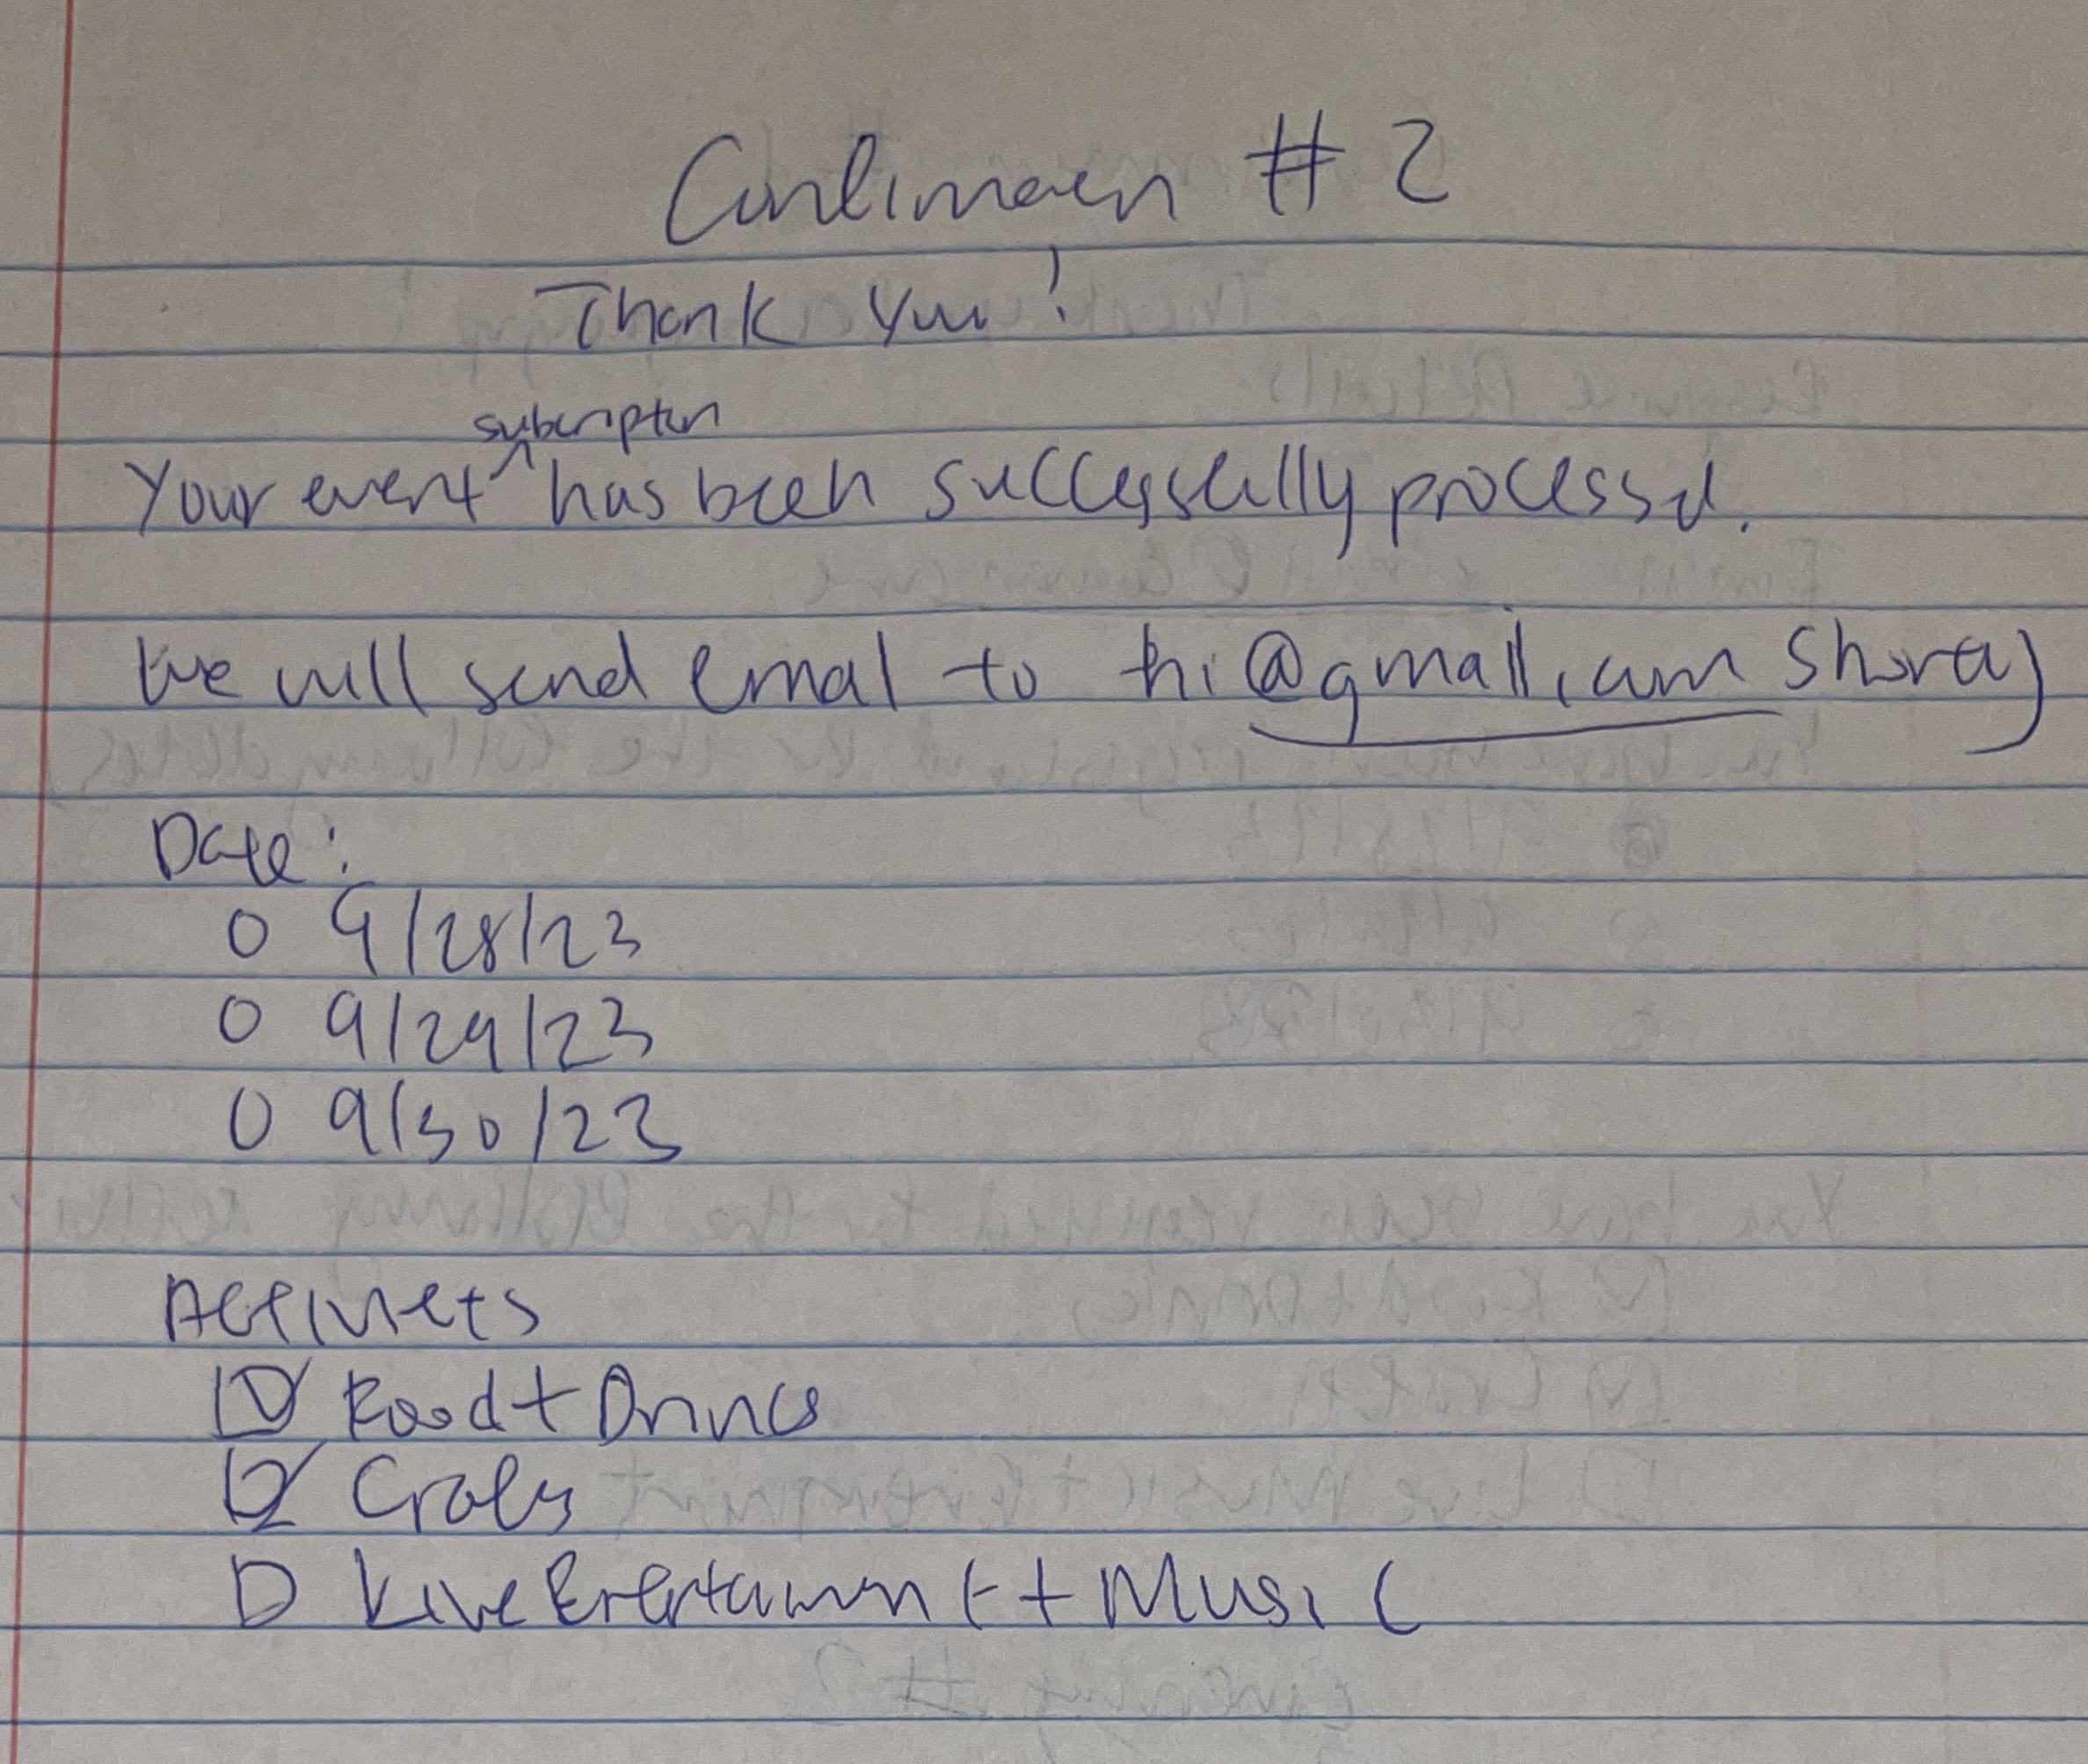 Confirmation # 2
Thank You!
subscription
Your event ^ has been successfully processed.
We will send email to hi@gmail.com shortly
Date:
O 9/28/23
O 9/29/23
O 9/30/23
Activities
☑ Food + Drinks
☑ Crafts
☐ Live Entertainment + Music